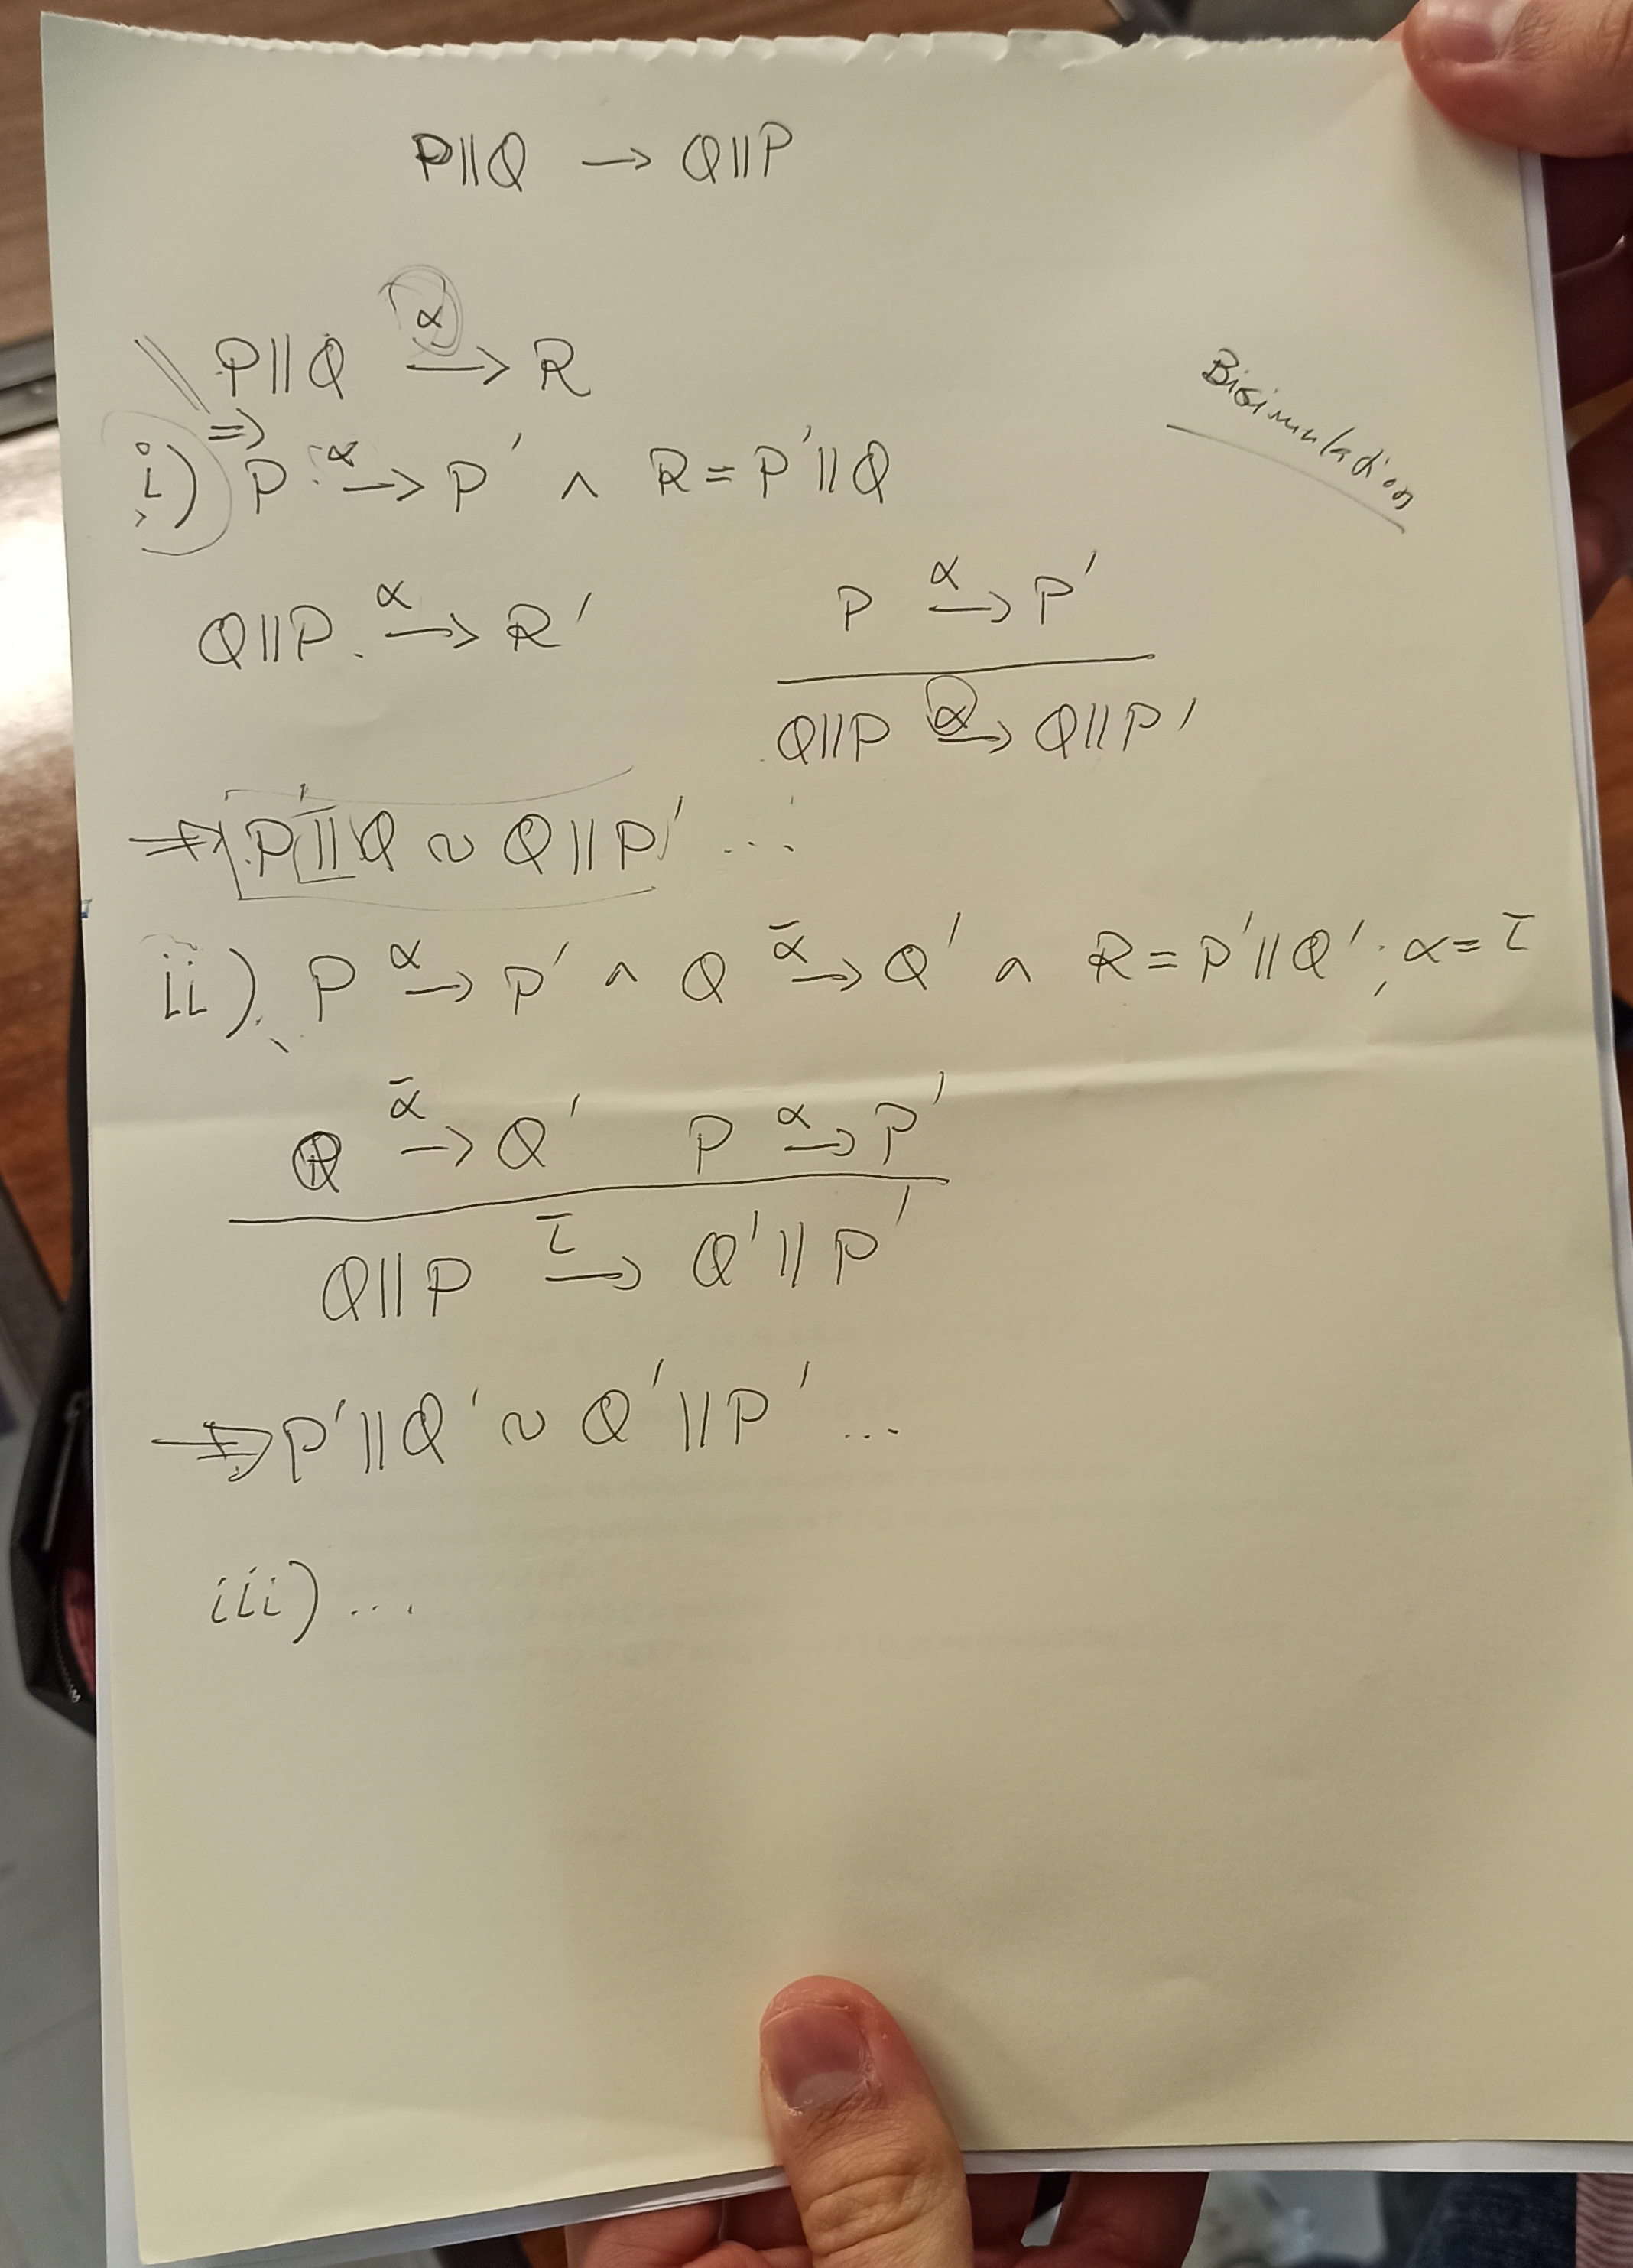 P||Q → Q||P
P||Q —α→ R
Bisimulation
⇒
i) P —α→ P' ∧ R = P'||Q
Q||P —α→ R'
P —α→ P'
Q||P —α→ Q||P'
⇒ P'||Q ~ Q||P' ...
ii) P —α→ P' ∧ Q —ᾱ→ Q' ∧ R = P'||Q' ; α = τ
Q —ᾱ→ Q' P —α→ P'
Q||P —τ→ Q'||P'
⇒ P'||Q' ~ Q'||P' ...
iii) ...